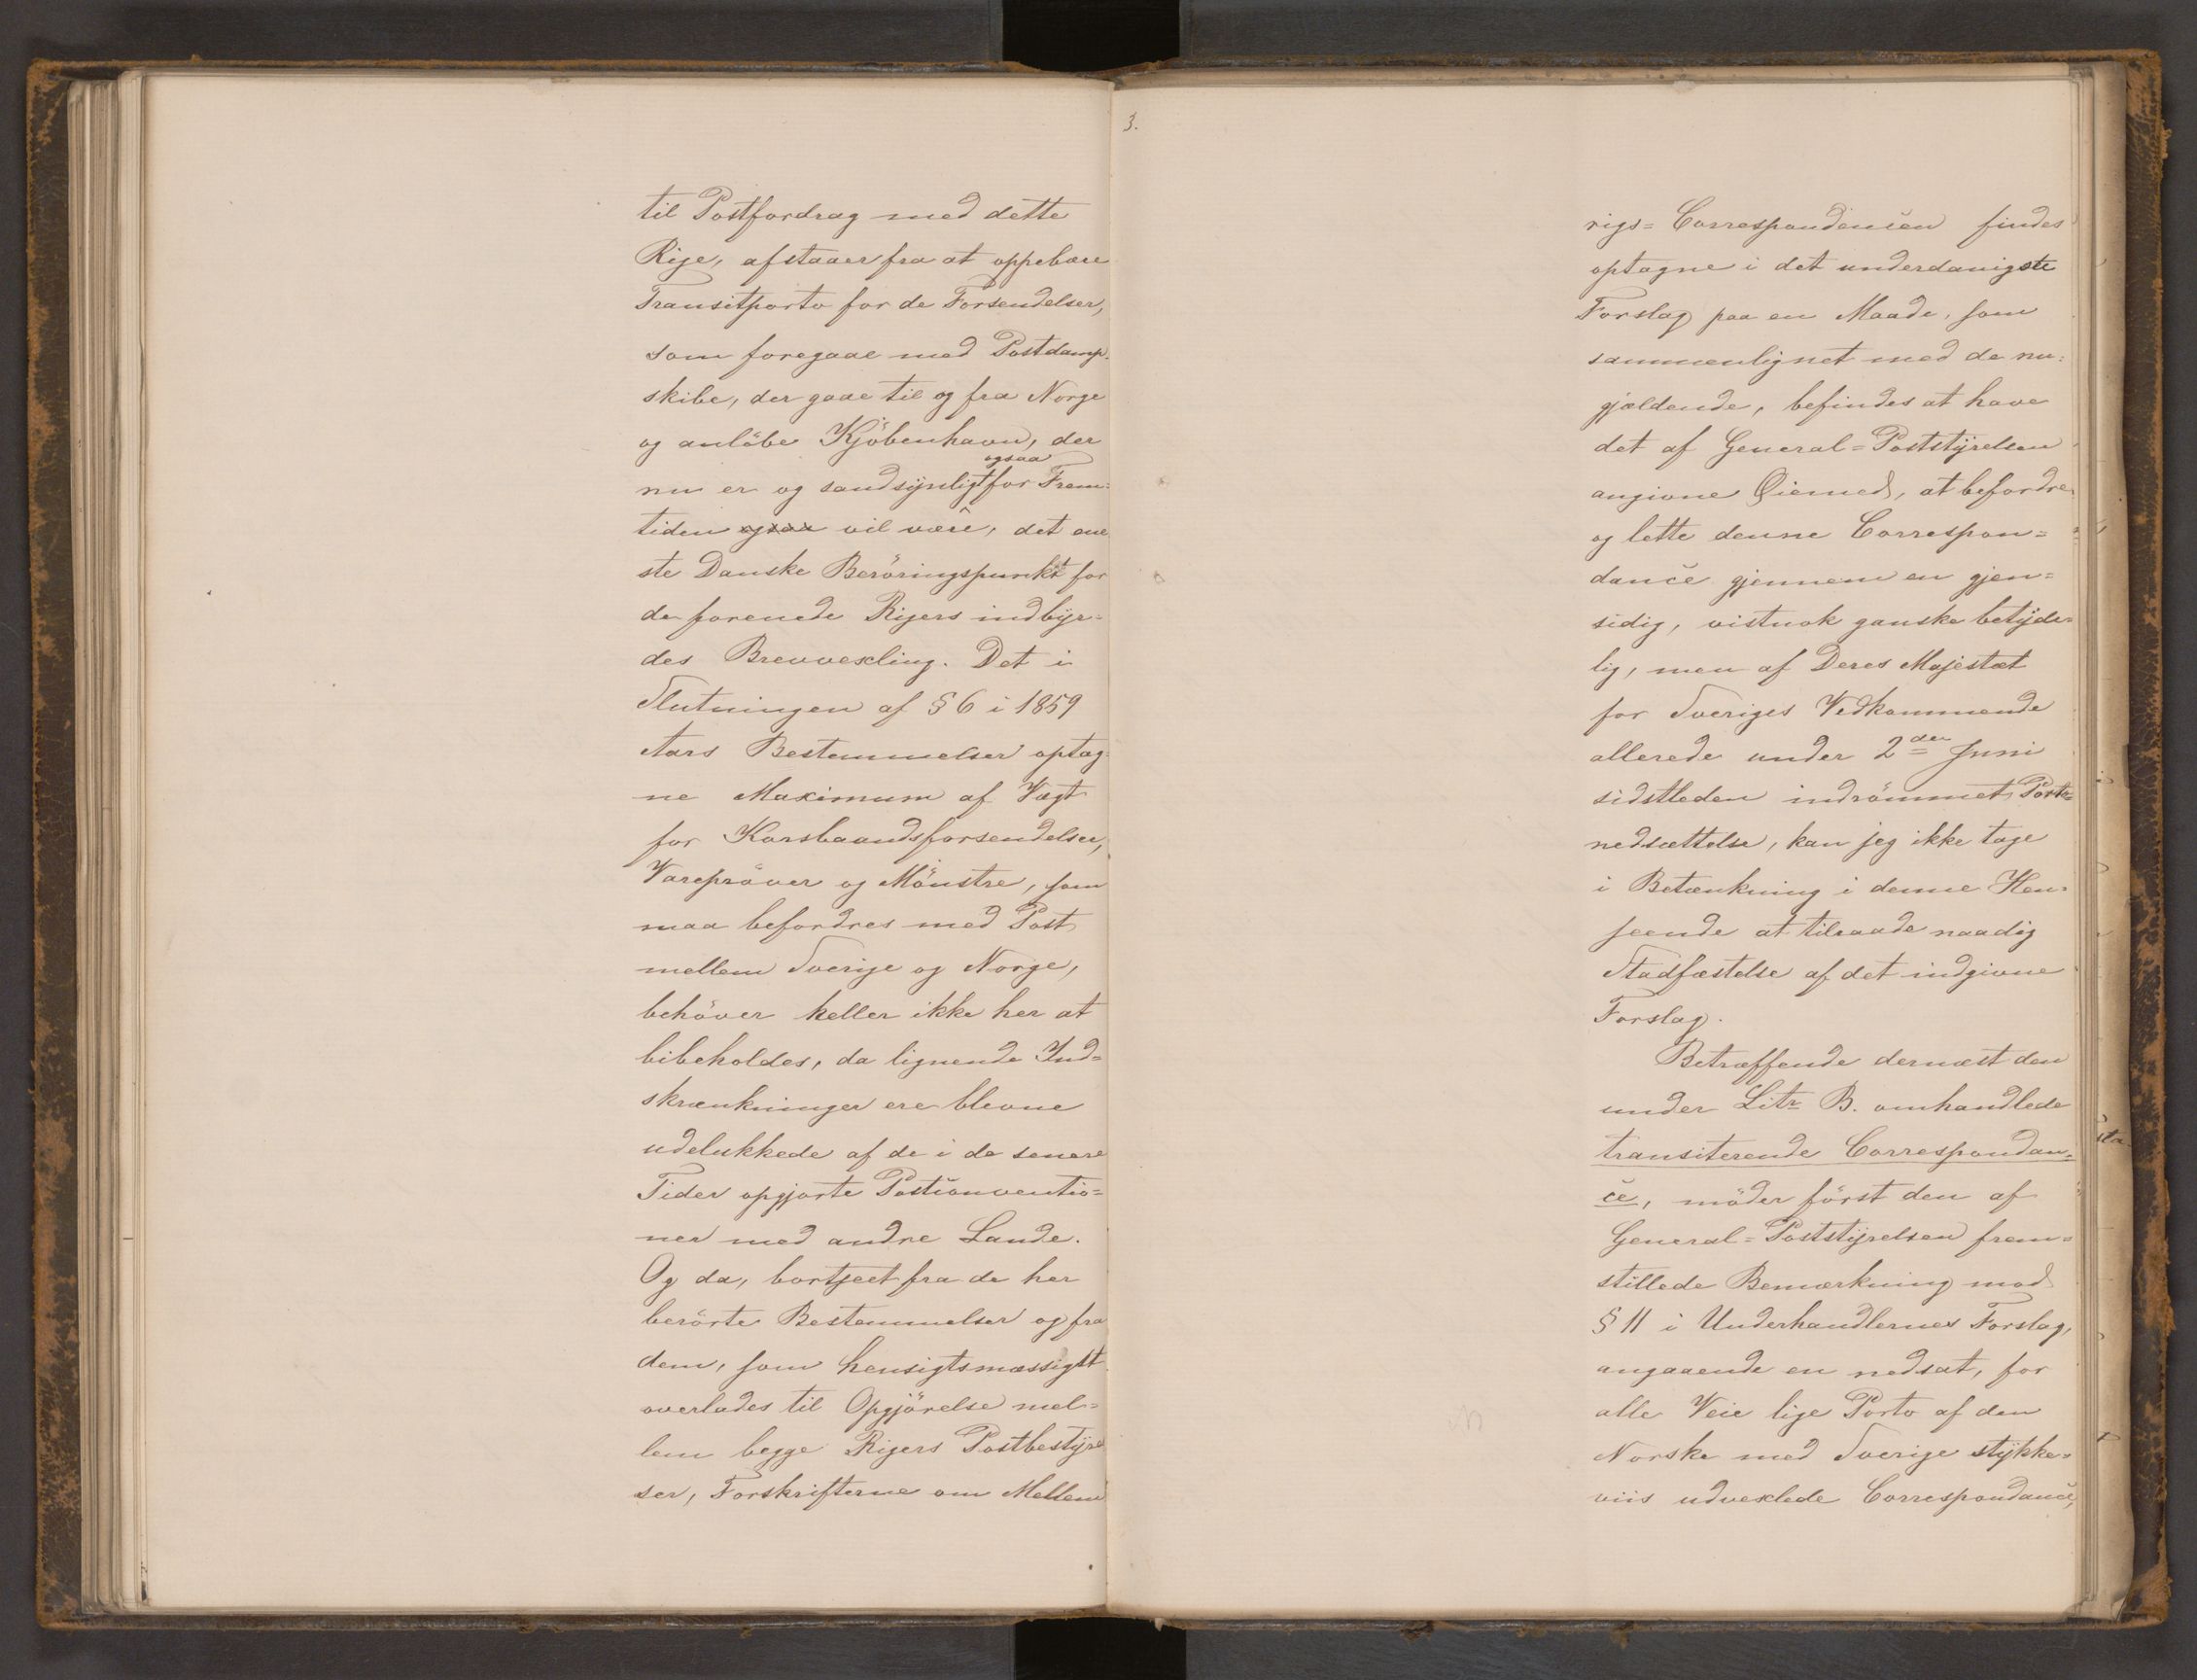 til Postfordrag med dette
Rige, afstaaer fra at oppebære
Transitporto for de Forsendelser,
som foregaae med Postdamp-
skibe, der gaae til og fra Norge
og anlöbe Kjöbenhavn, der
nu er og sandsynligt ogsaa for Frem=
tiden ogsaa vil være, det ene
ste Danske Beröringspunkt for
de forenede Rigers indbyr=
des Brevvexling. Det i
Slutningen af § 6 i 1859
Aars Bestemmelser optag
ne Maximum af Vægt
for Korsbaandsforsendelser,
Varepröver og Mönstre, som
maa befordres med Post
mellem Sverige og Norge,
behöver heller ikke her at
bibeholdes, da lignende Ind=
skrænkninger ere blevne
udelukkede af de i de senere
Tider opgjorte Postconventio=
ner med andre Lande.
Og da, bortseet fra de her
berörte Bestemmelser og fra
dem, som hensigtsmæssigst
overlades til Opgjörelse mel=
lem begge Rigers Postbestyrel
ser, Forskrifterne om Mellem
3.
rigs=Correspondencen findes
optagne i det underdanigste
Forslag paa en Maade, som
sammenlignet med de nu=
gjældende, befindes at have
det af General=Poststyrelsen
angivne Öiemed, at befordre
og lette denne Correspon=
dance gjennem en gjen=
sidig, vistnok ganske betyde=
lig, men af Deres Majestæt
for Sveriges Vedkommende
allerede under 2den Juni
sidstleden indrömmet Porto=
nedsættelse, kan jeg ikke tage
i Betænkning i denne Hen=
seende at tilraade naadig
Stadfæstelse af det indgivne
Forslag.
Betræffende dernæst den
under Litr B. omhandlede
transiterende Correspondan=
ce, möder först den af
General=Poststyrelsen frem=
stillede Bemærkning mod
§ 11 i Underhandlernes Forslag,
angaaende en nedsat, for
alle Veie lige Porto af den
Norske med Sverige stykke=
viis udvexlede Correspondance,